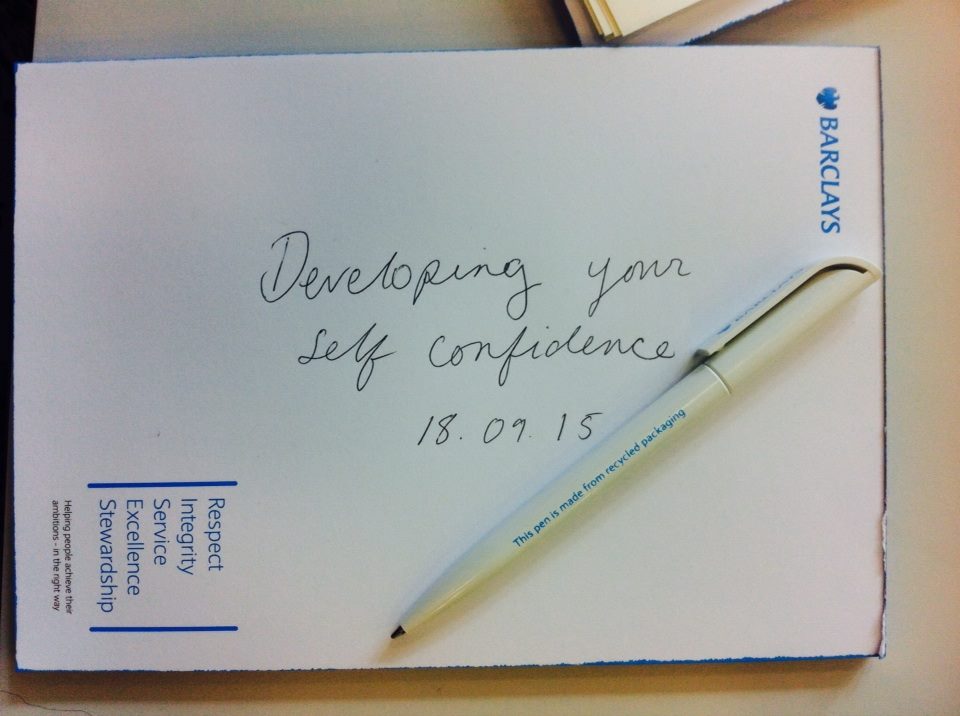 BARCLAYS
Developing your
self confidence
18.09.15
This pen is made from recycled packaging
Respect
Integrity
Service
Excellence
Stewardship
Helping people achieve their
ambitions - in the right way